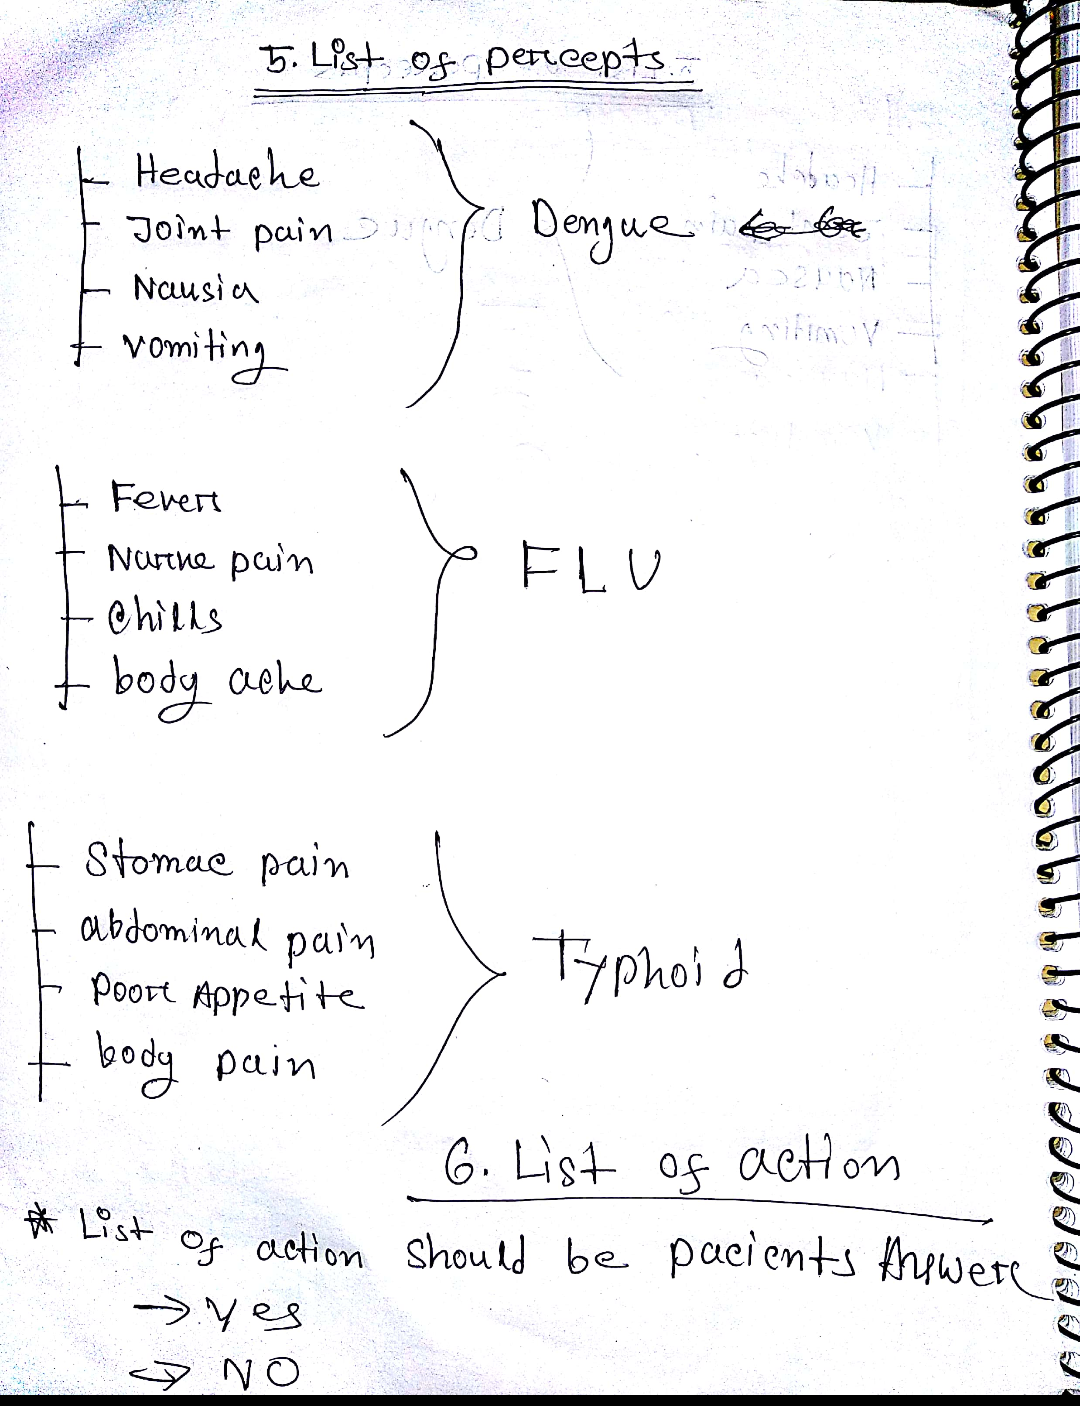 5. List of percepts
Headache
Joint pain
Nausia
vomiting
Dengue
Fever
Narve pain
Chills
body ache
FLU
Stomac pain
abdominal pain
Poor Appetite
body pain
Typhoid
6. List of action
* List of action should be pacients Answer
→ Yes
→ NO